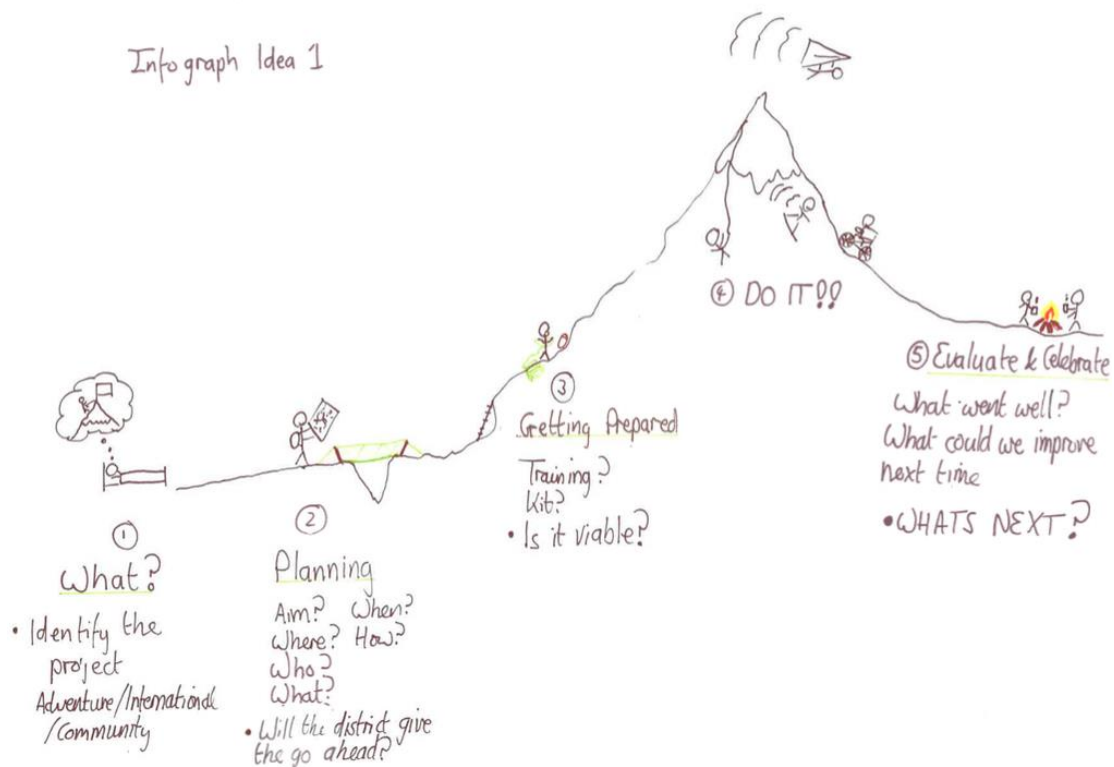 Infograph Idea 1
①
What?
• Identify the
project
Adventure/International
/Community
②
Planning
Aim? When?
Where? How?
Who?
What?
• Will the district give
the go ahead?
③
Getting Prepared
Training?
Kit?
• Is it viable?
④ DO IT!!
⑤ Evaluate & Celebrate
What went well?
What could we improve
next time
• WHATS NEXT?